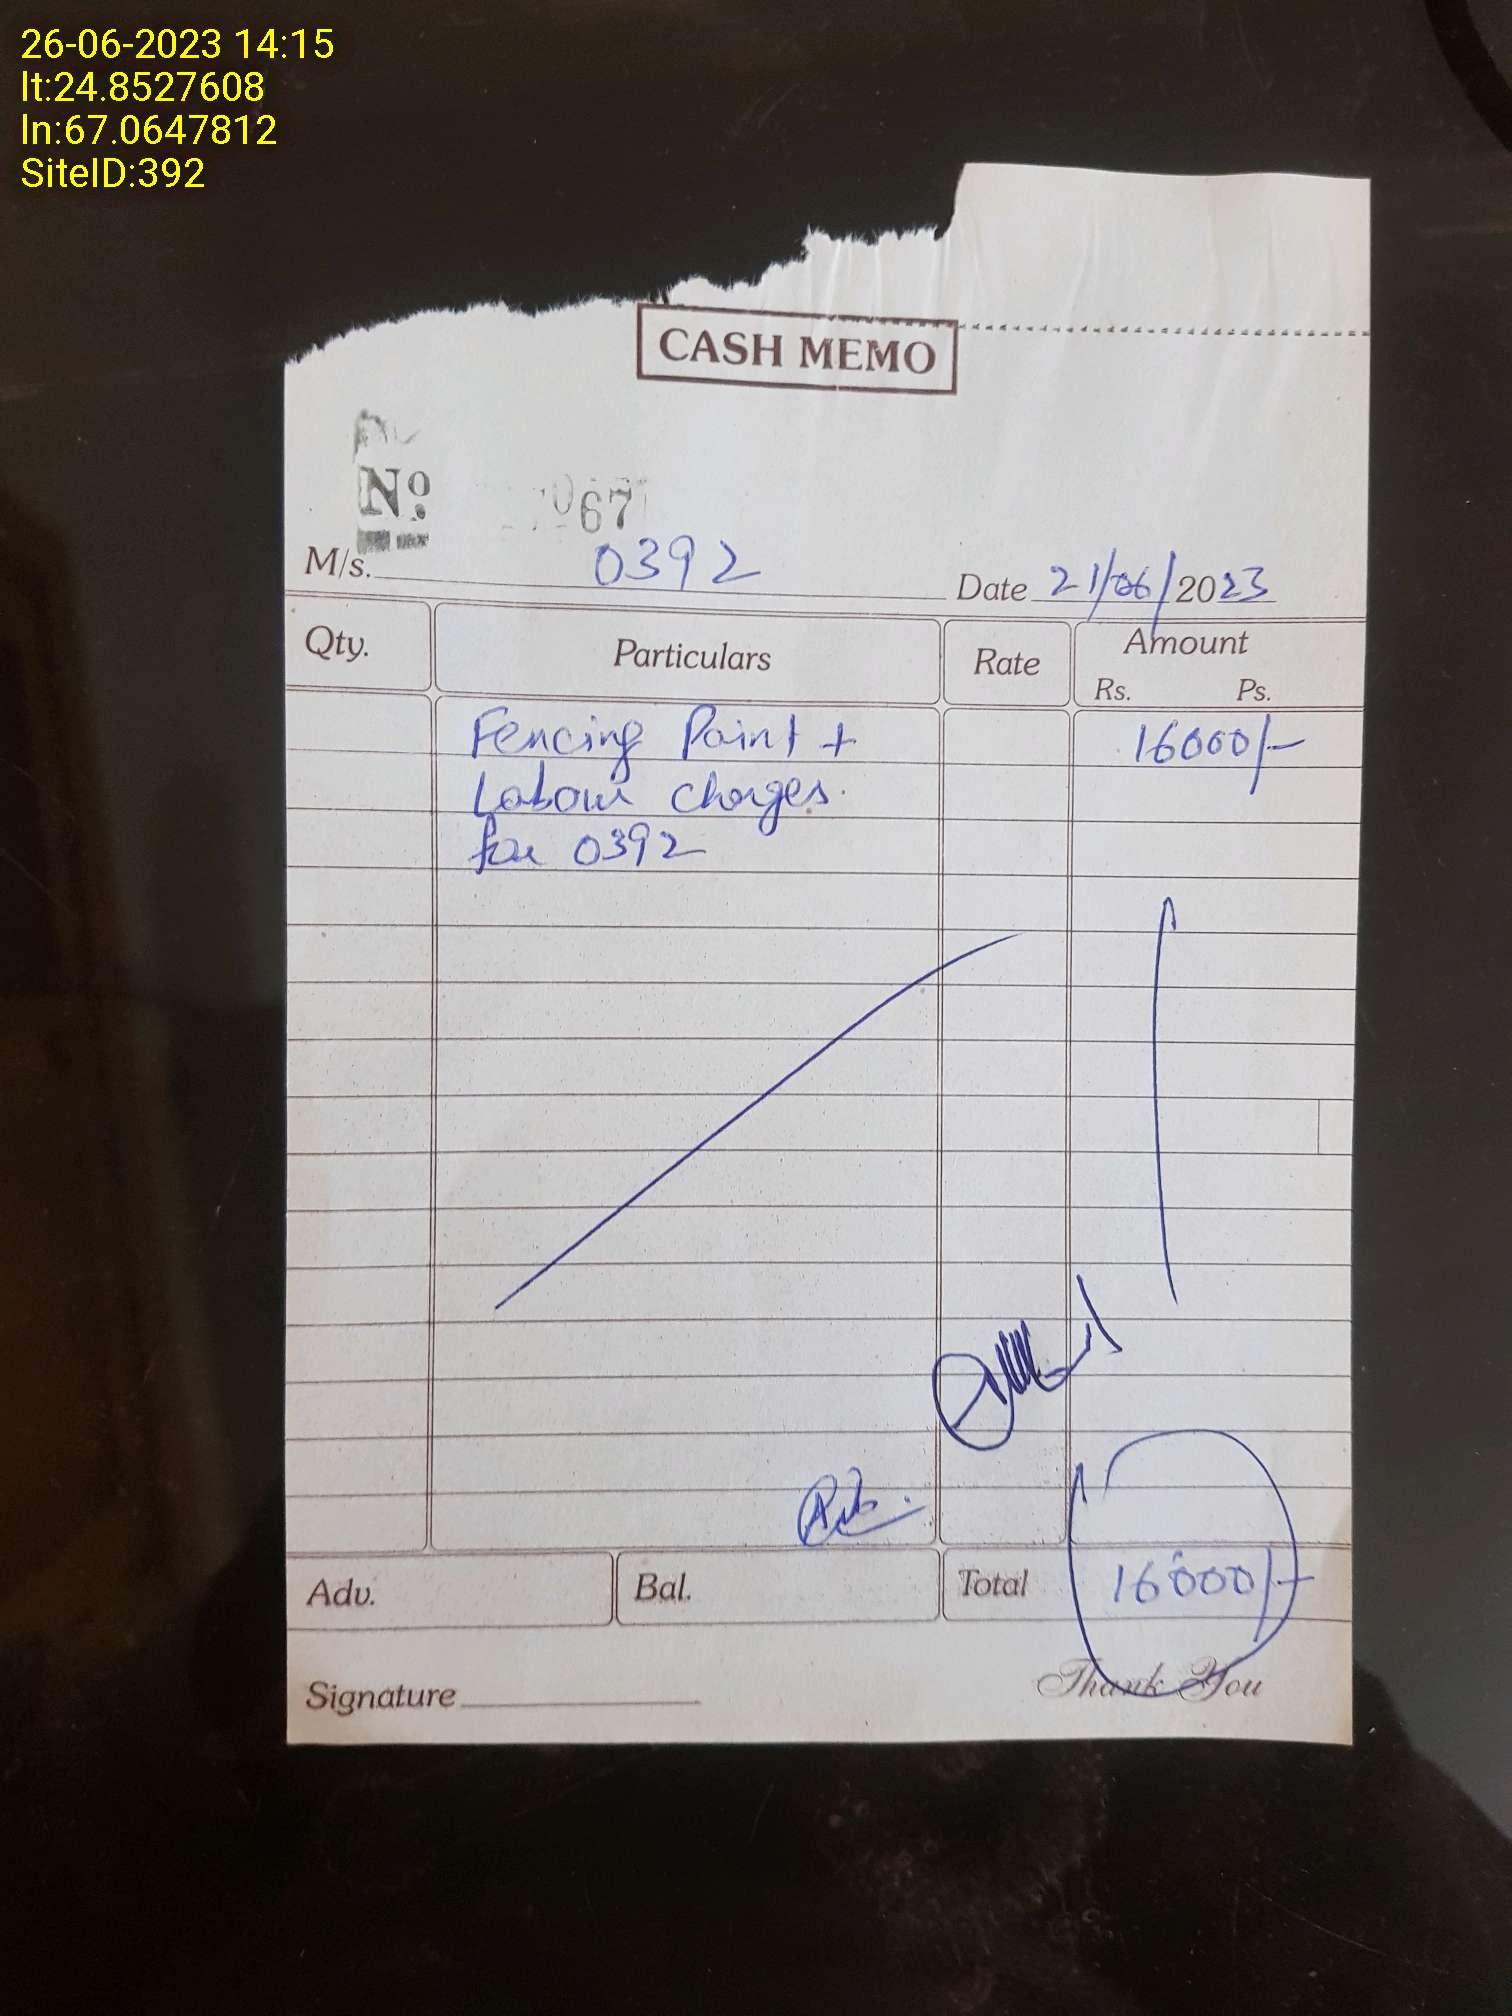 26-06-2023 14:15
lt:24.8527608
ln:67.0647812
SiteID:392
CASH MEMO
No. 067
M/s. 0392 Date 21/06/2023
Qty. Particulars Rate Amount
Rs. Ps.
Fencing Paint + 16000/-
Labour charges.
for 0392
Adv. Bal. Total 16000/-
Signature
Thank You